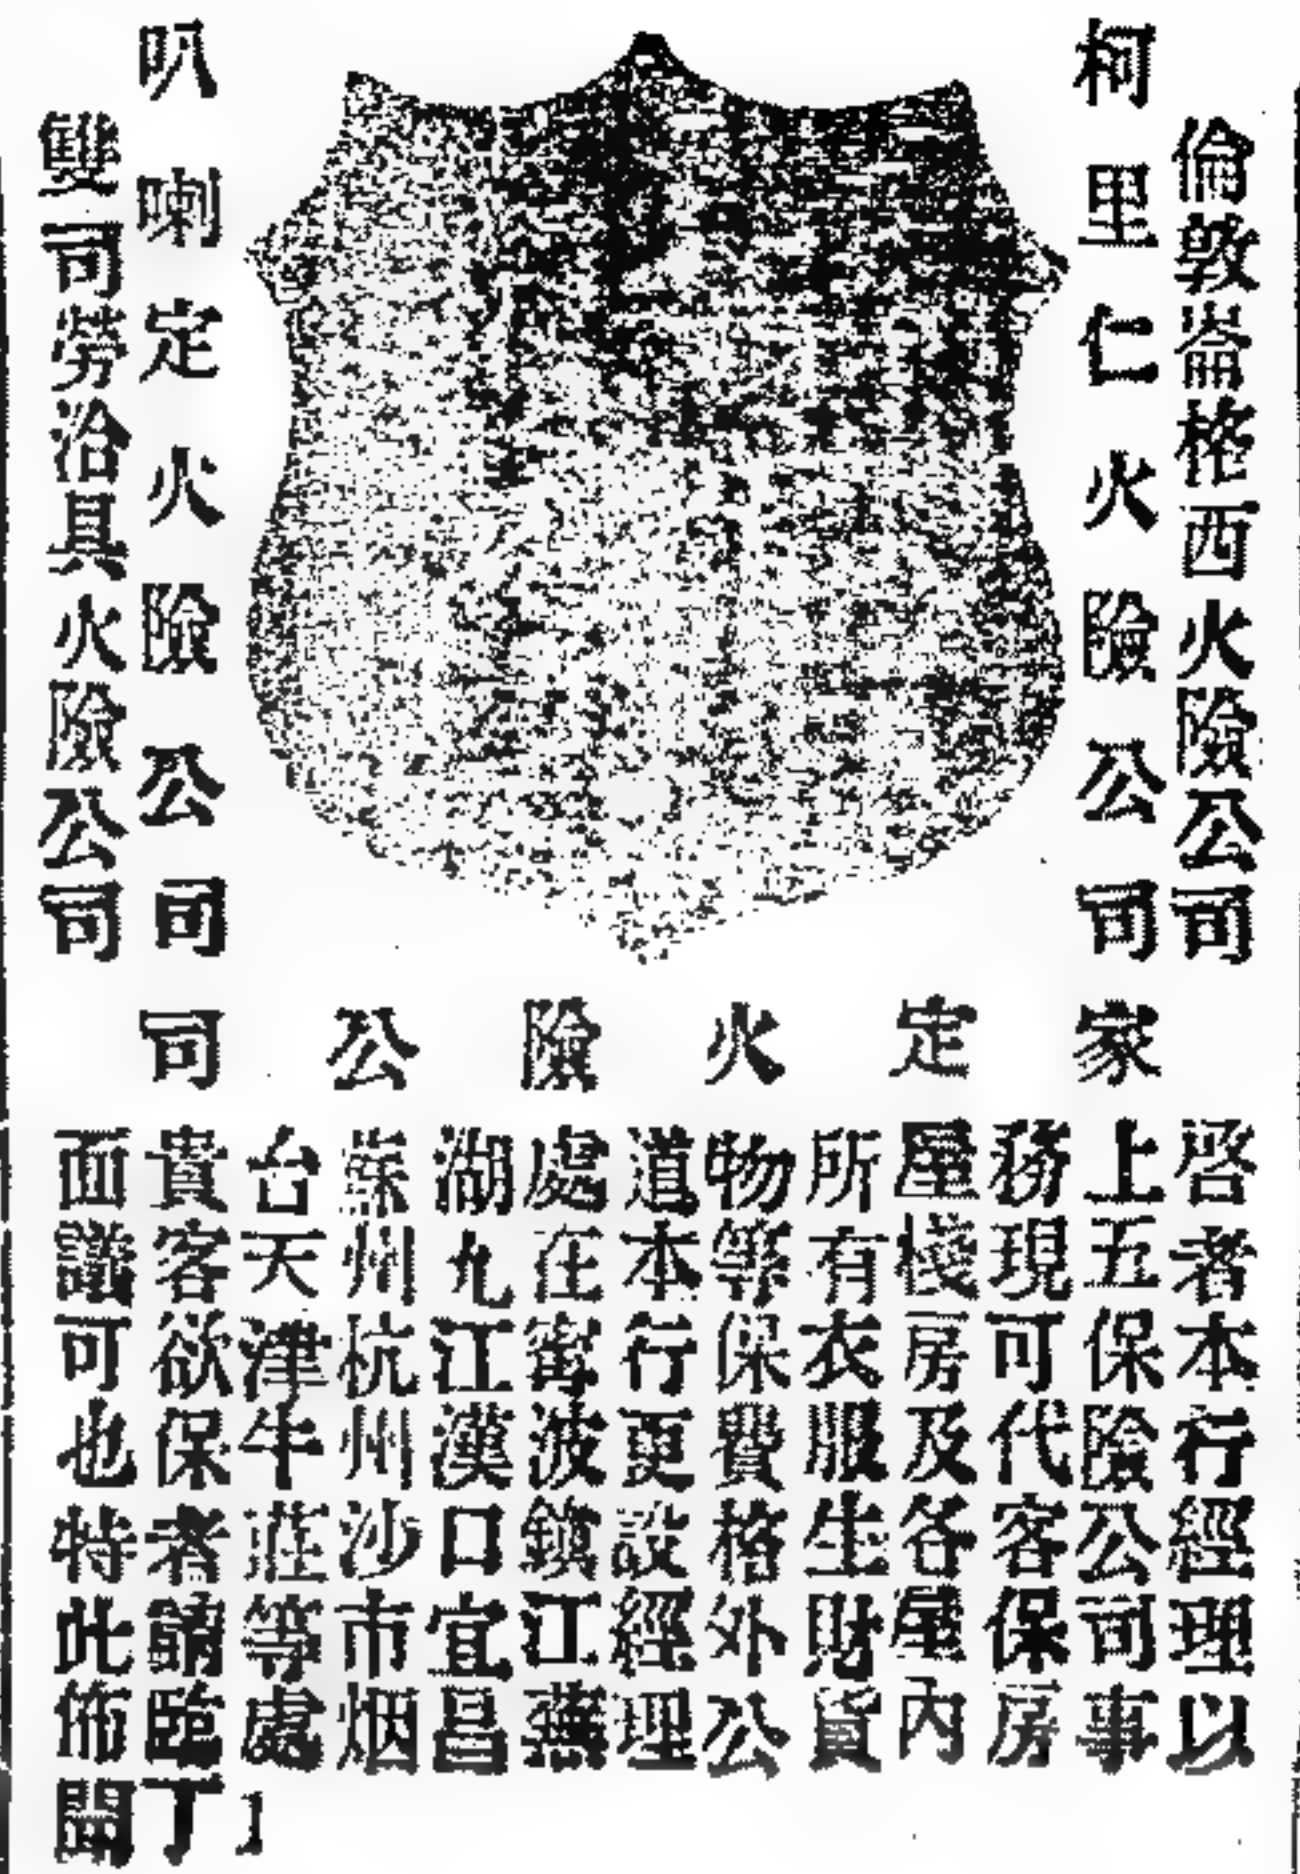 倫敦崙格西火險公司
柯里仁火險公司
叭喇定火險公司
雙司勞治具火險公司
家定火險公司
啓者本行經理以
上五保險公司事
務現可代客保房
屋棧房及各屋內
所有衣服生財貨
物等保費格外公
道本行更設經理
處在甯波鎮江蕪
湖九江漢口宜昌
蘇州杭州沙市烟
台天津牛莊等處
貴客欲保者請臨
面議可也特此佈聞